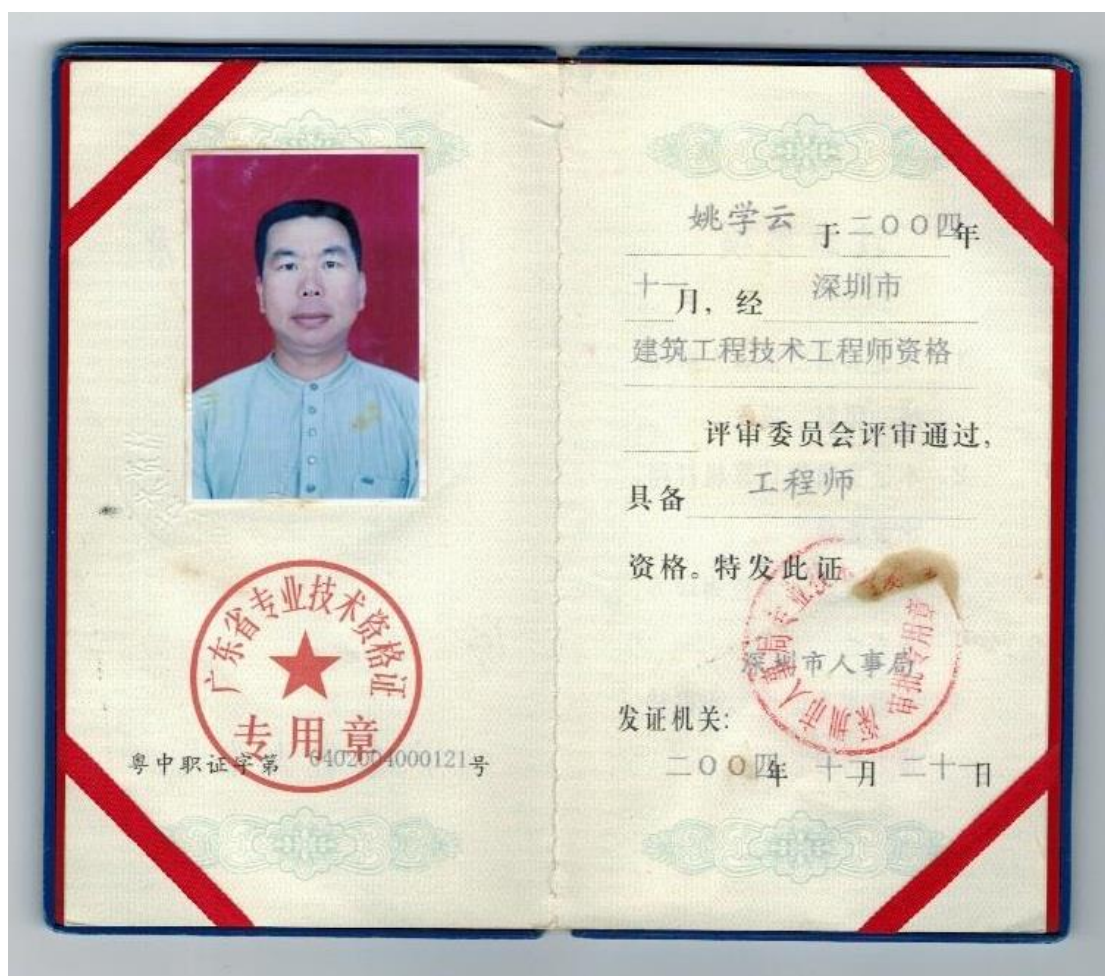 广东省专业技术资格证
专用章
粤中职证字第 0402004000121号
姚学云 于二〇〇四年
十一月,经 深圳市
建筑工程技术工程师资格
评审委员会评审通过,
具备 工程师
资格。特发此证
深圳市人事局
发证机关:
二〇〇四年 十二月 二十一日